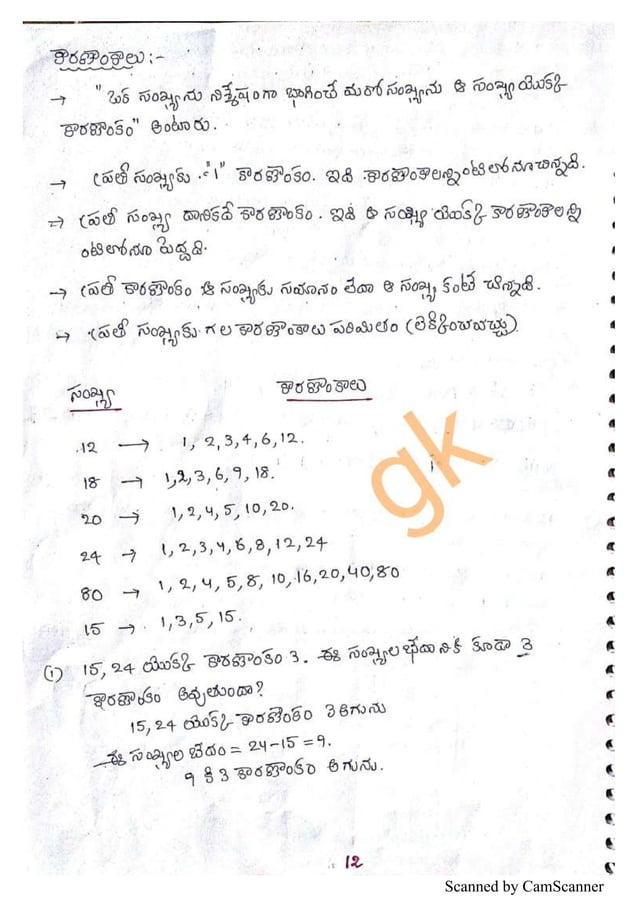 కారణాంకాలు :-
→ "ఒక సంఖ్యను నిశ్శేషంగా భాగించే మరో సంఖ్యను ఆ సంఖ్య యొక్క
కారణాంకం" అంటారు.
→ ప్రతీ సంఖ్యకు "1" కారణాంకం. ఇది కారణాంకాలన్నింటిలోనూ చిన్నది.
→ ప్రతీ సంఖ్య దానికదే కారణాంకం. ఇది ఆ సంఖ్య యొక్క కారణాంకాలన్ని
ంటిలోనూ పెద్దది.
→ ప్రతీ కారణాంకం ఆ సంఖ్యకు సమానం లేదా ఆ సంఖ్య కంటే చిన్నది.
→ ప్రతీ సంఖ్యకు గల కారణాంకాలు పరిమితం (లెక్కించవచ్చు).
సంఖ్య కారణాంకాలు
12 → 1, 2, 3, 4, 6, 12.
18 → 1, 2, 3, 6, 9, 18.
20 → 1, 2, 4, 5, 10, 20.
24 → 1, 2, 3, 4, 6, 8, 12, 24
80 → 1, 2, 4, 5, 8, 10, 16, 20, 40, 80
15 → 1, 3, 5, 15.
gk
(1) 15, 24 యొక్క కారణాంకం 3. ఈ సంఖ్యల భేదానికి కూడా 3
కారణాంకం అవుతుందా?
15, 24 యొక్క కారణాంకం 3 అగును
ఈ సంఖ్యల బేదం = 24-15 = 9.
9 కి 3 కారణాంకం అగును.
12
Scanned by CamScanner